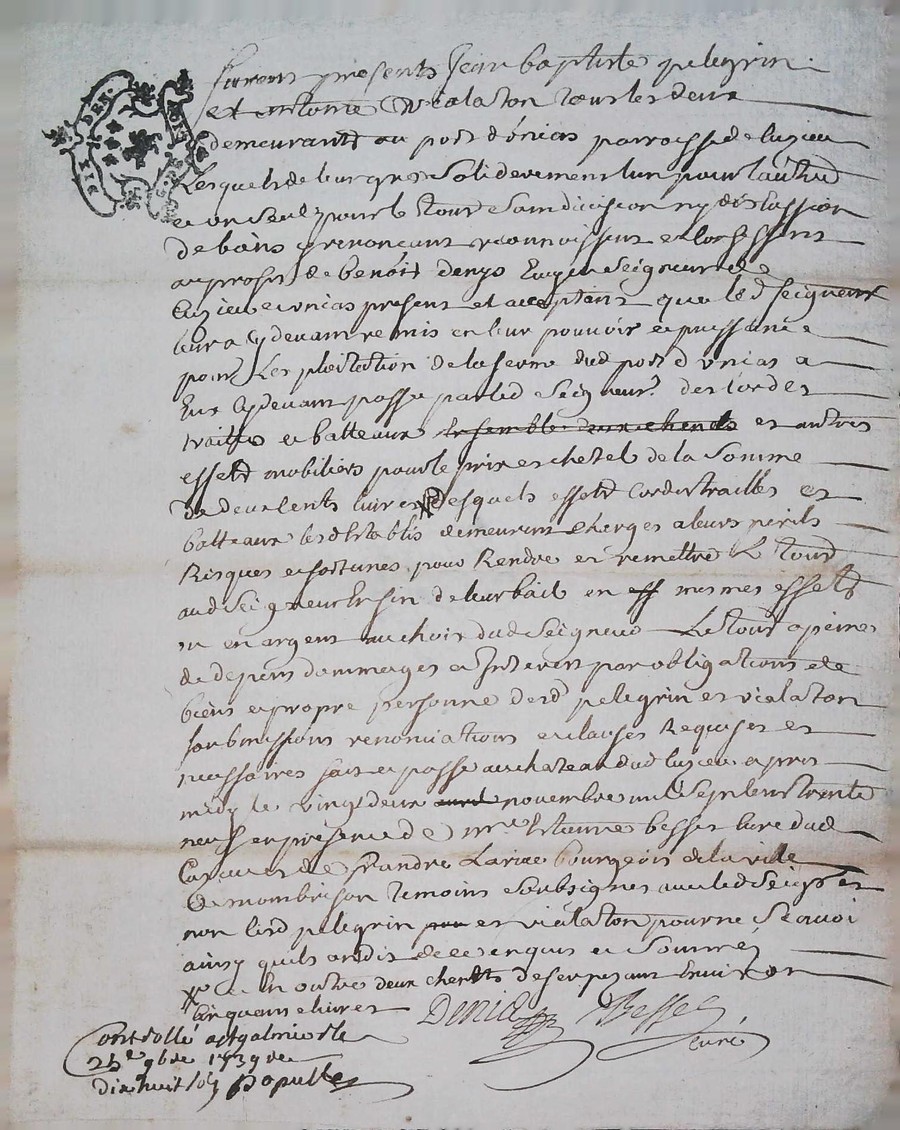 furent presents Jean baptiste pelegrin
et antoine vialaton tous les deux
demeurants au port d'unias parroisse de luzieu
Lesquels de leur gres soliderement lun pour lautre
et un seul pour le tout sans division ny discussion
de biens y renoncant reconnoissent et confessent
au proffit de benoit denys Ecuyer Seigneur de
Cuzieu et unias present et acceptant que led seigneur
leur a cy devant remis en leur pouvoir et puissance
pour Lexploitation de la ferme dud port d unias a
Eux cy devant passe par led Seigneur des cordes
trailles et batteaux ensemble deux chenets et autres
effets mobiliers pour le prix et chetel de la somme
de deux cents livres desquels effets cordes trailles et
batteaux les Establis demeurent charges a leurs perils
Risques et fortunes pour Rendre et remettre Le tout
aud Seigneur En fin de leur bail en eff mesmes effets
ou en argent au choix dud Seigneur Le tout a peine
de depens dommages et Interets par obligations de
biens et propre personne desd pelegrin et vialaton
soubmissions renonciations et clauses Requises et
necessaires fait et passe au chateau dud Cuzieu apres
midy le vingt deux novembre mil sept cens trente
neuf en presence de mre Etienne besses cure dud
Cuzieu et de Larive bourgeois de la ville
De monbrison temoins soubsignes avec led Seigr et
non lesd pelegrin et vialaton pour ne scavoir
ainsy quils ont dit de ce enquis et sommes
et en outre deux chenets de fer pezant Environ
cinquante livres
Denis Besses
curé
Controllé a St galmier le
25e 9bre 1739 Re
dix huit sols Populle